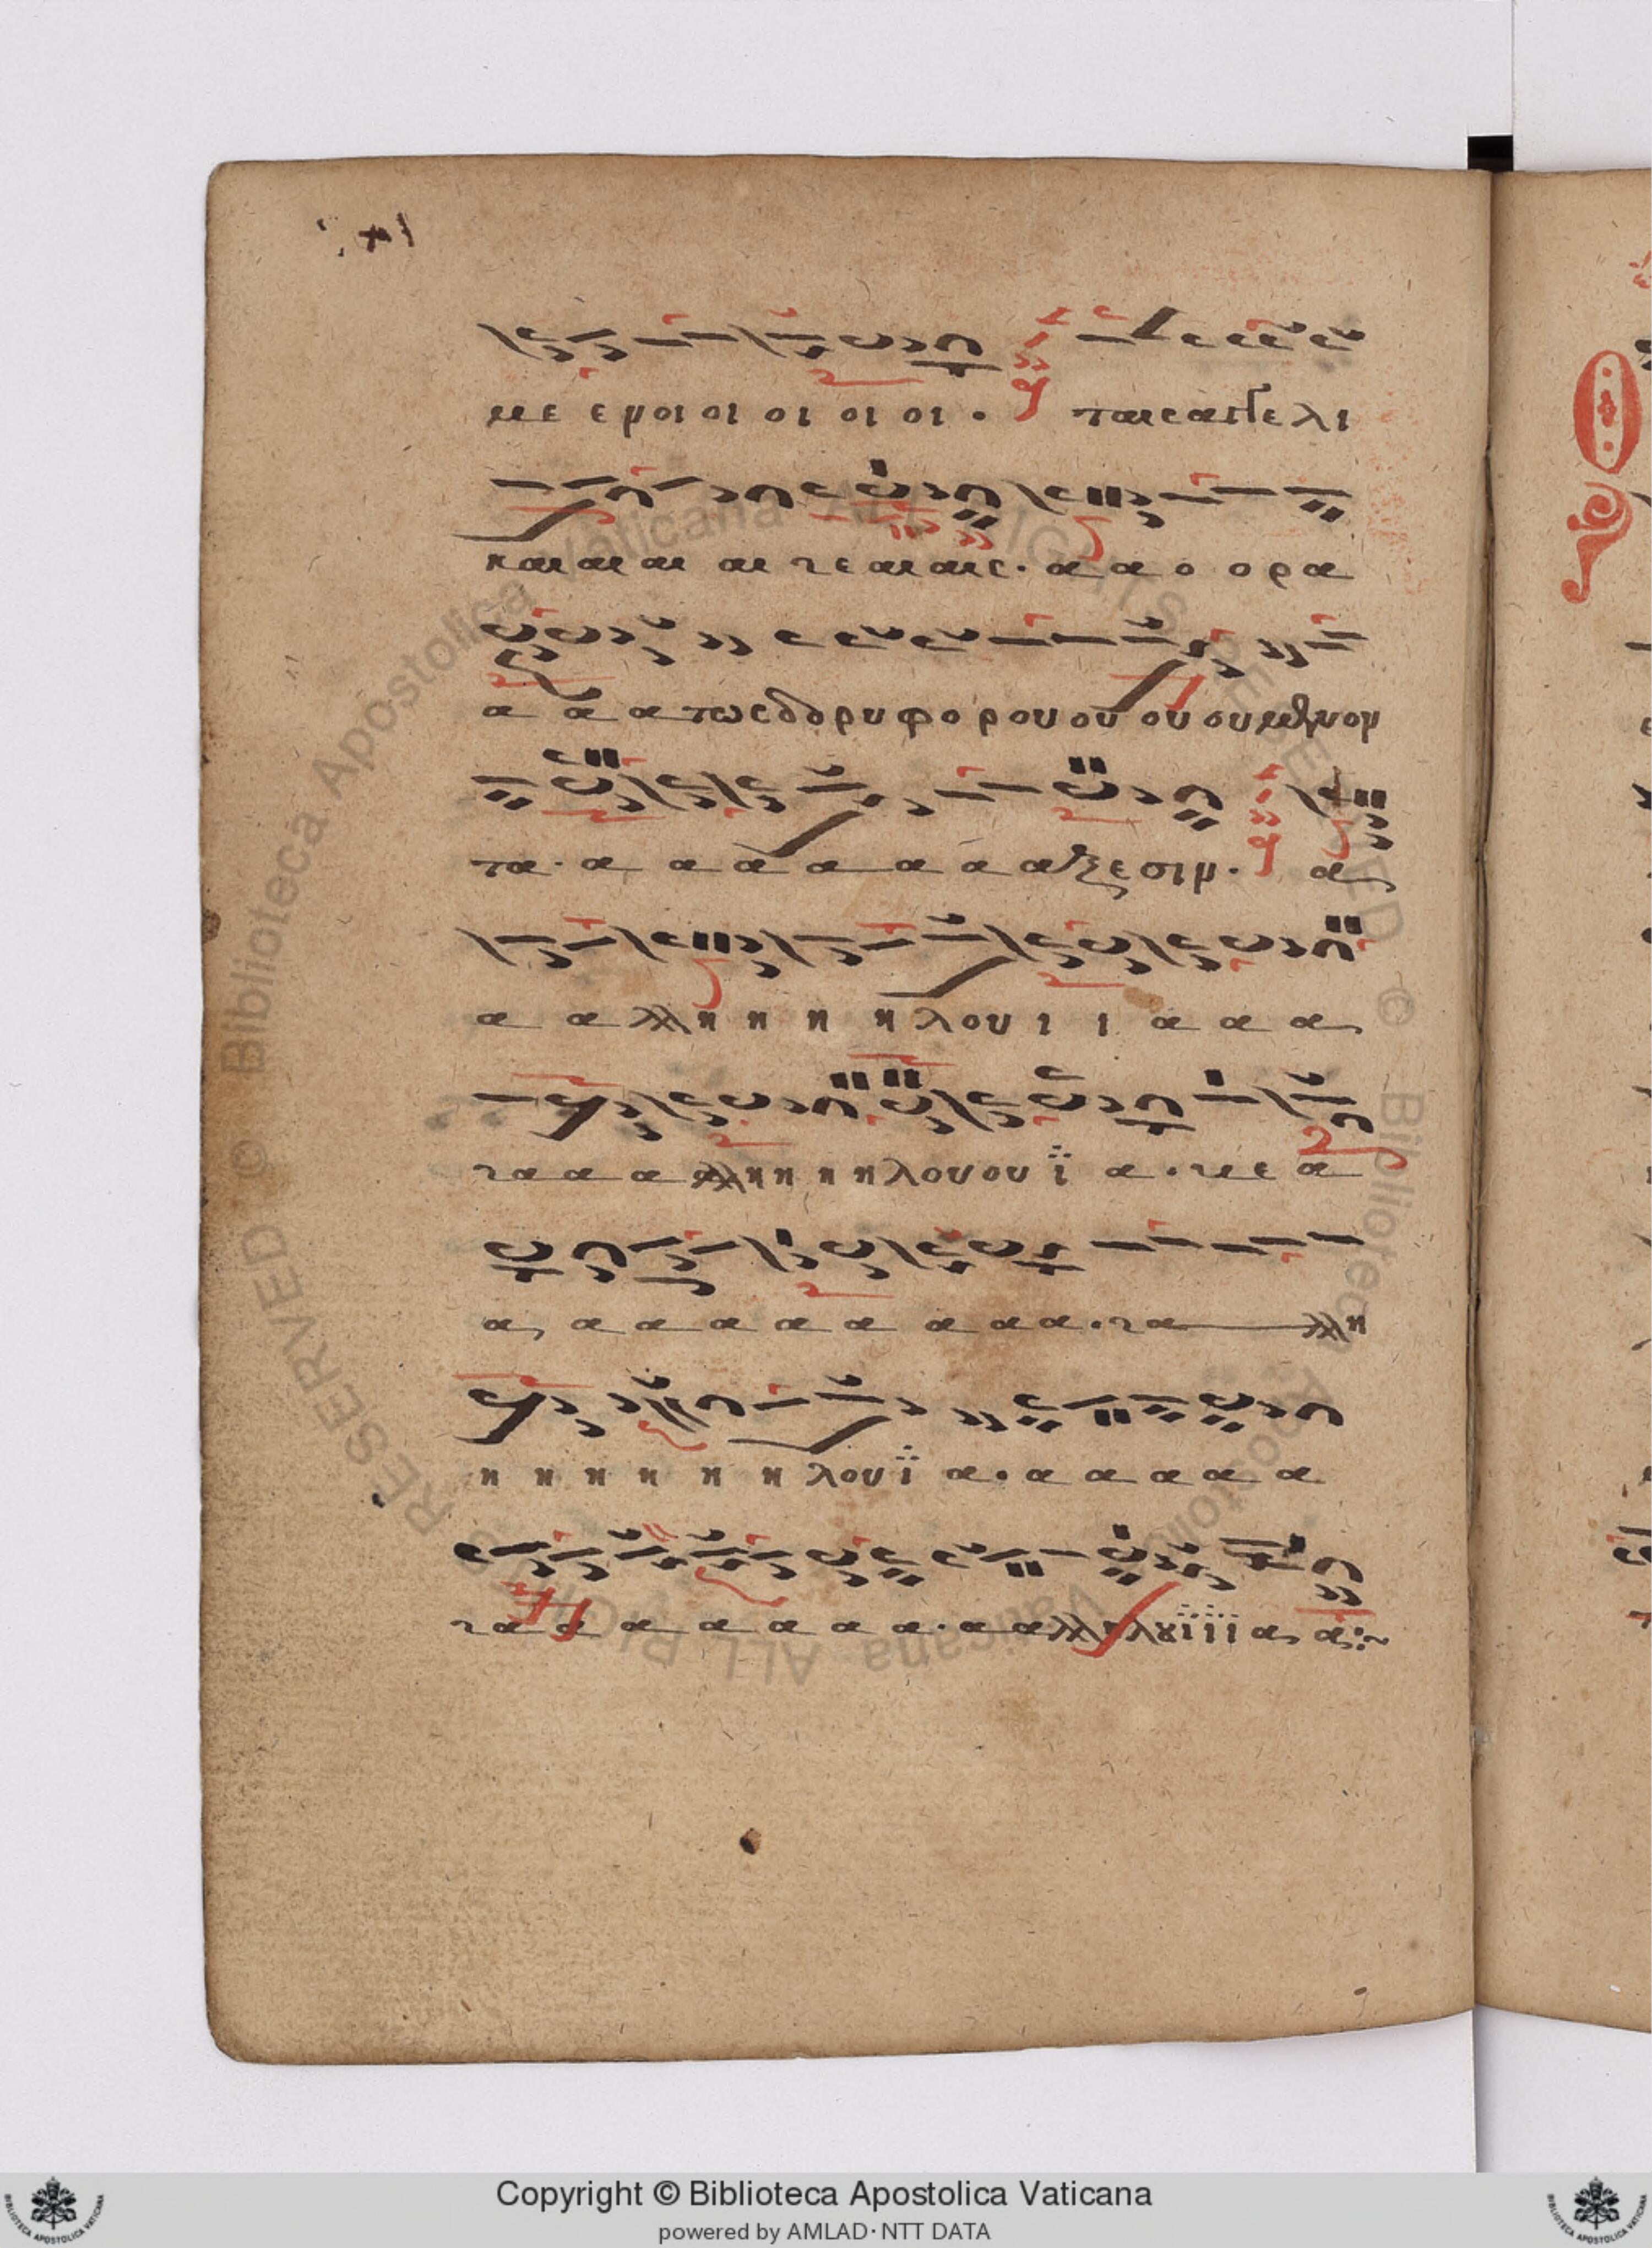 με ε νοι οι οι οι οι . ταις αγγελι
και αι αι αι τε αι αις . α α ο ο ρα
α α α τως δορυφορου ου ου ουμενον
τα . α α α α α α αξεσιν . α
α α λλη η η η λου ι ι α α α
τα α α αλλη η η η λου ου ϊ α . με α
α α α α α α α α α . τα λλη
η η η η η η λου ϊ α . α α α α α
τα α α α α α α . α αλληλουϊ ϊ ϊ α α :~
Copyright © Biblioteca Apostolica Vaticana
powered by AMLAD·NTT DATA